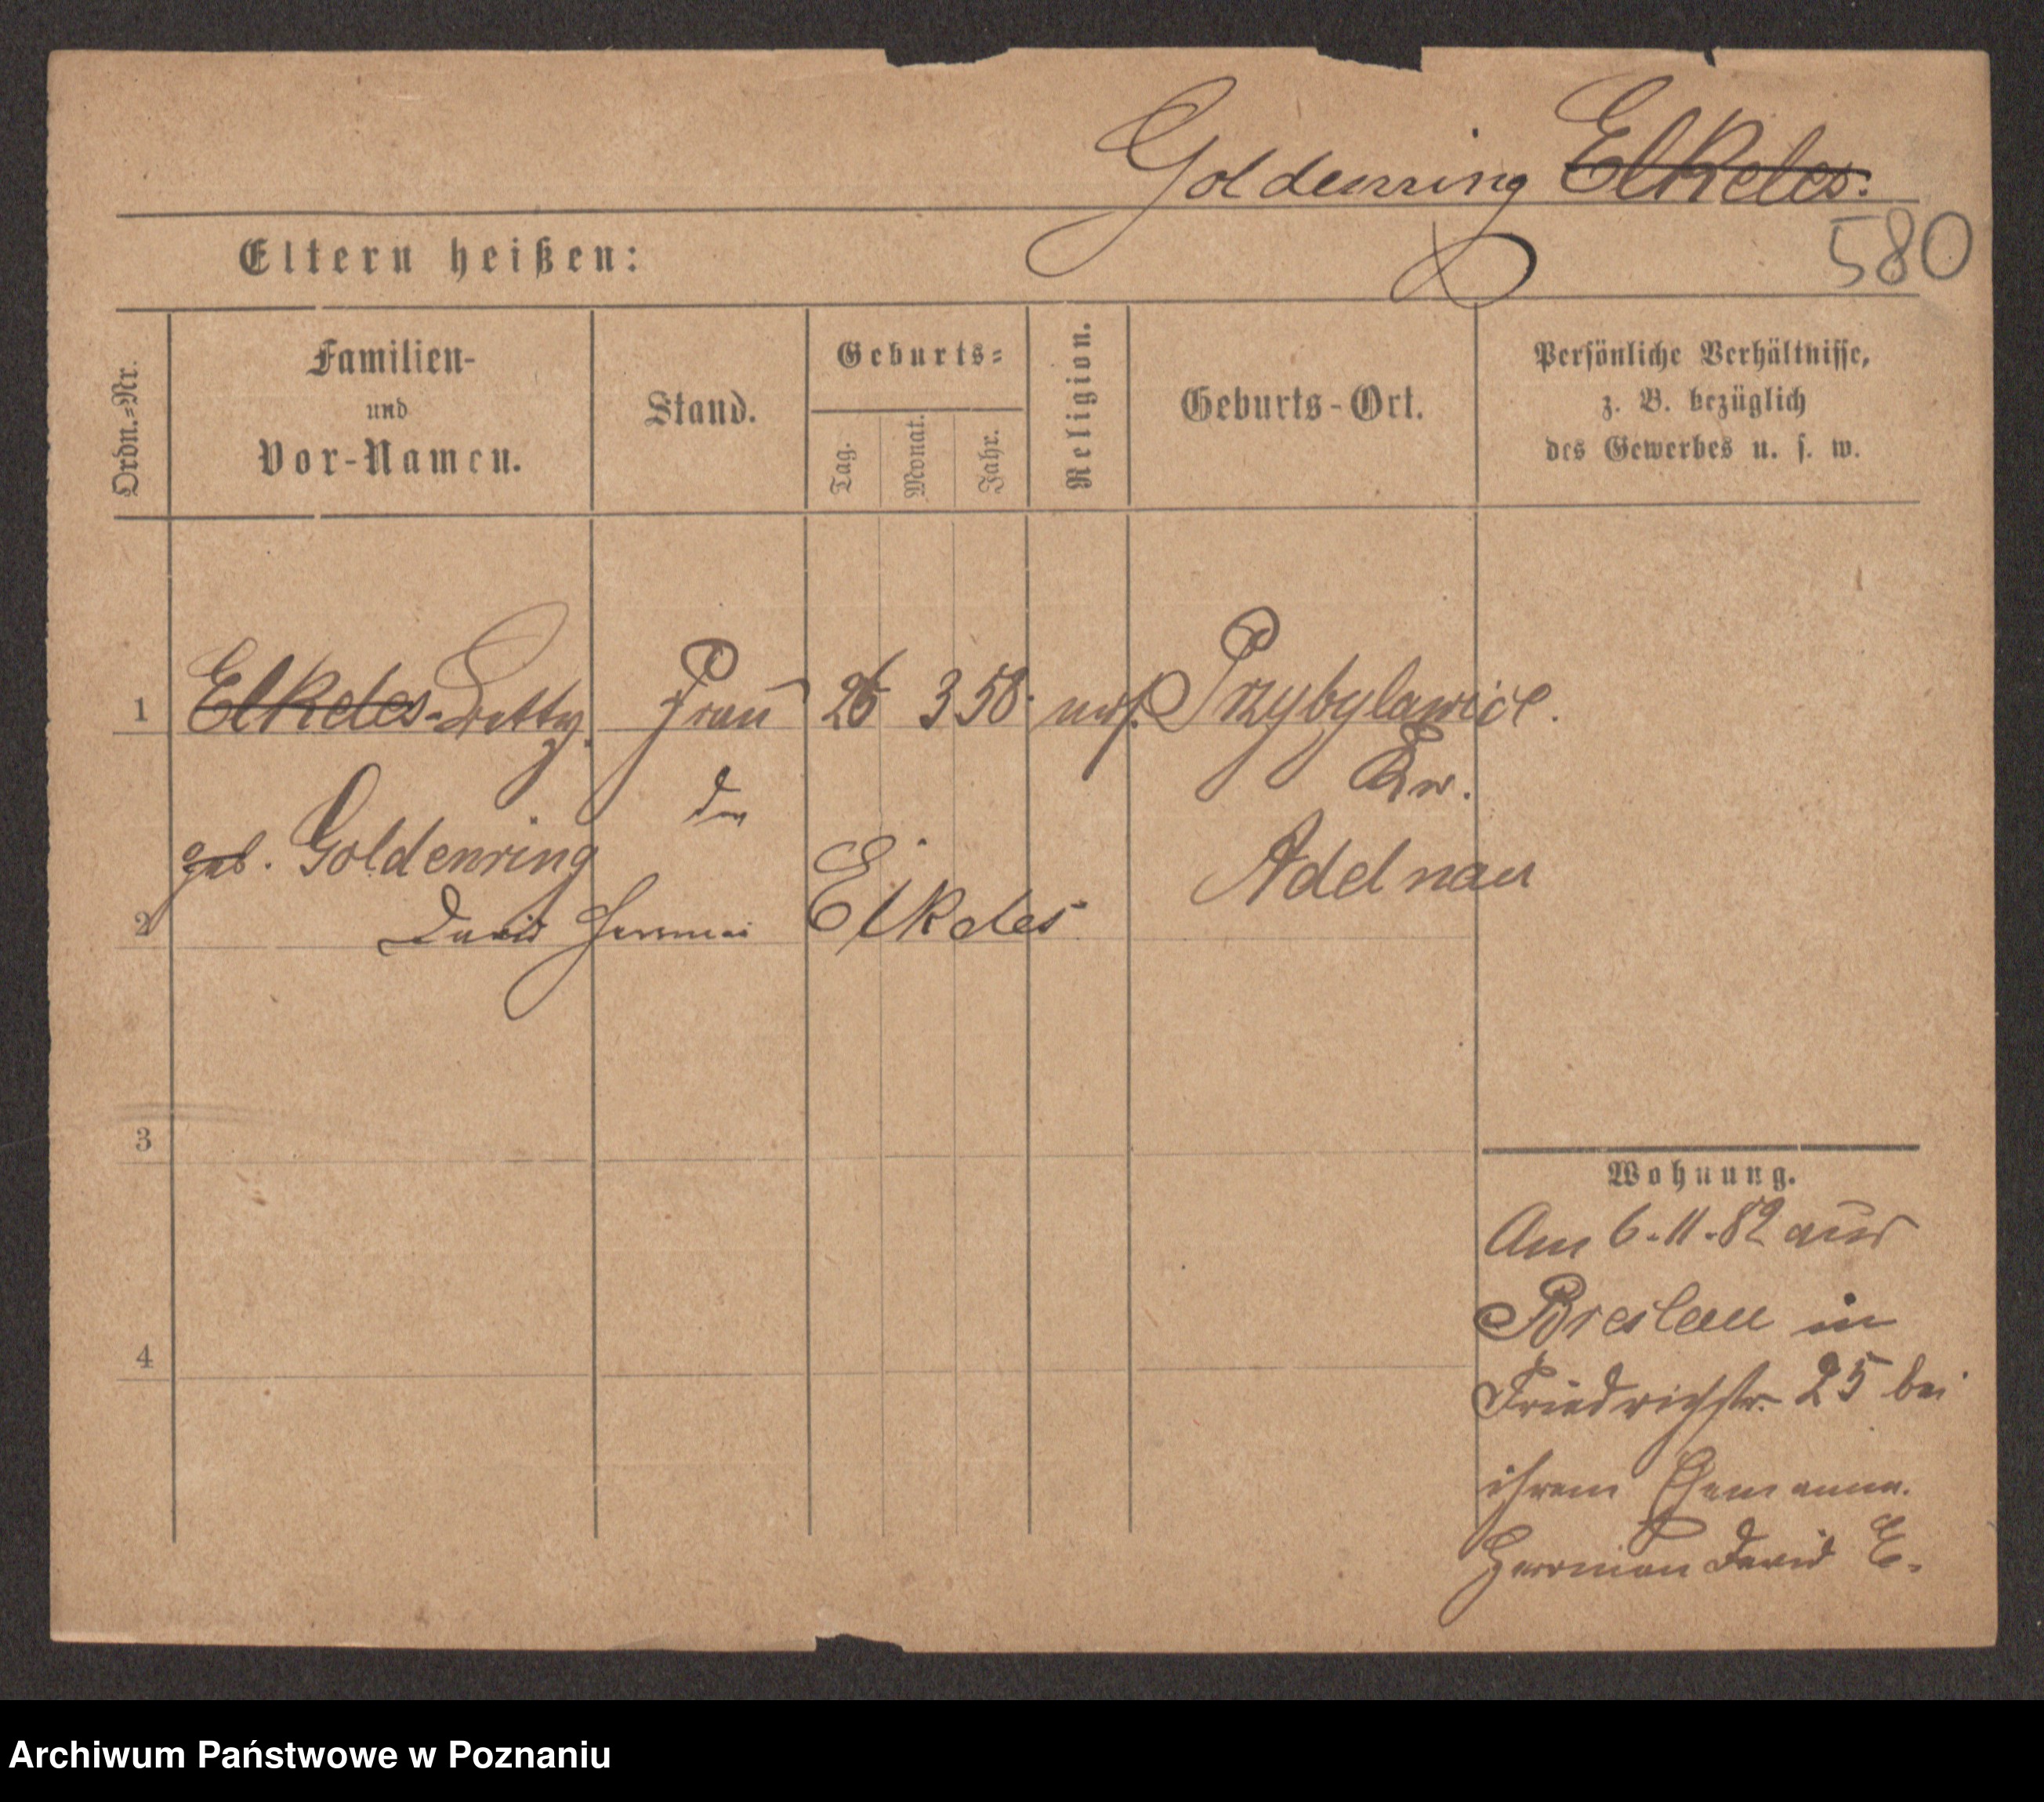 Goldenring Elkeles.
580
Eltern heißen:
Ordn.=Nr.
Familien-
und
Vor-Namen.
Stand.
Geburts=
Tag.
Monat.
Jahr.
Religion.
Geburts-Ort.
Persönliche Verhältnisse,
z. B. bezüglich
des Gewerbes u. s. w.
1 Elkeles Frau 26 3 58 Przybylawice.
Kr.
der
geb. Goldenring Adelnau
2 David Herrman Elkeles
3
4
Wohnung.
Am 6.11.82 aus
Breslau in
Friedrichstr. 25 bei
ihrem Ehemanne.
Herrman David E.
Archiwum Państwowe w Poznaniu